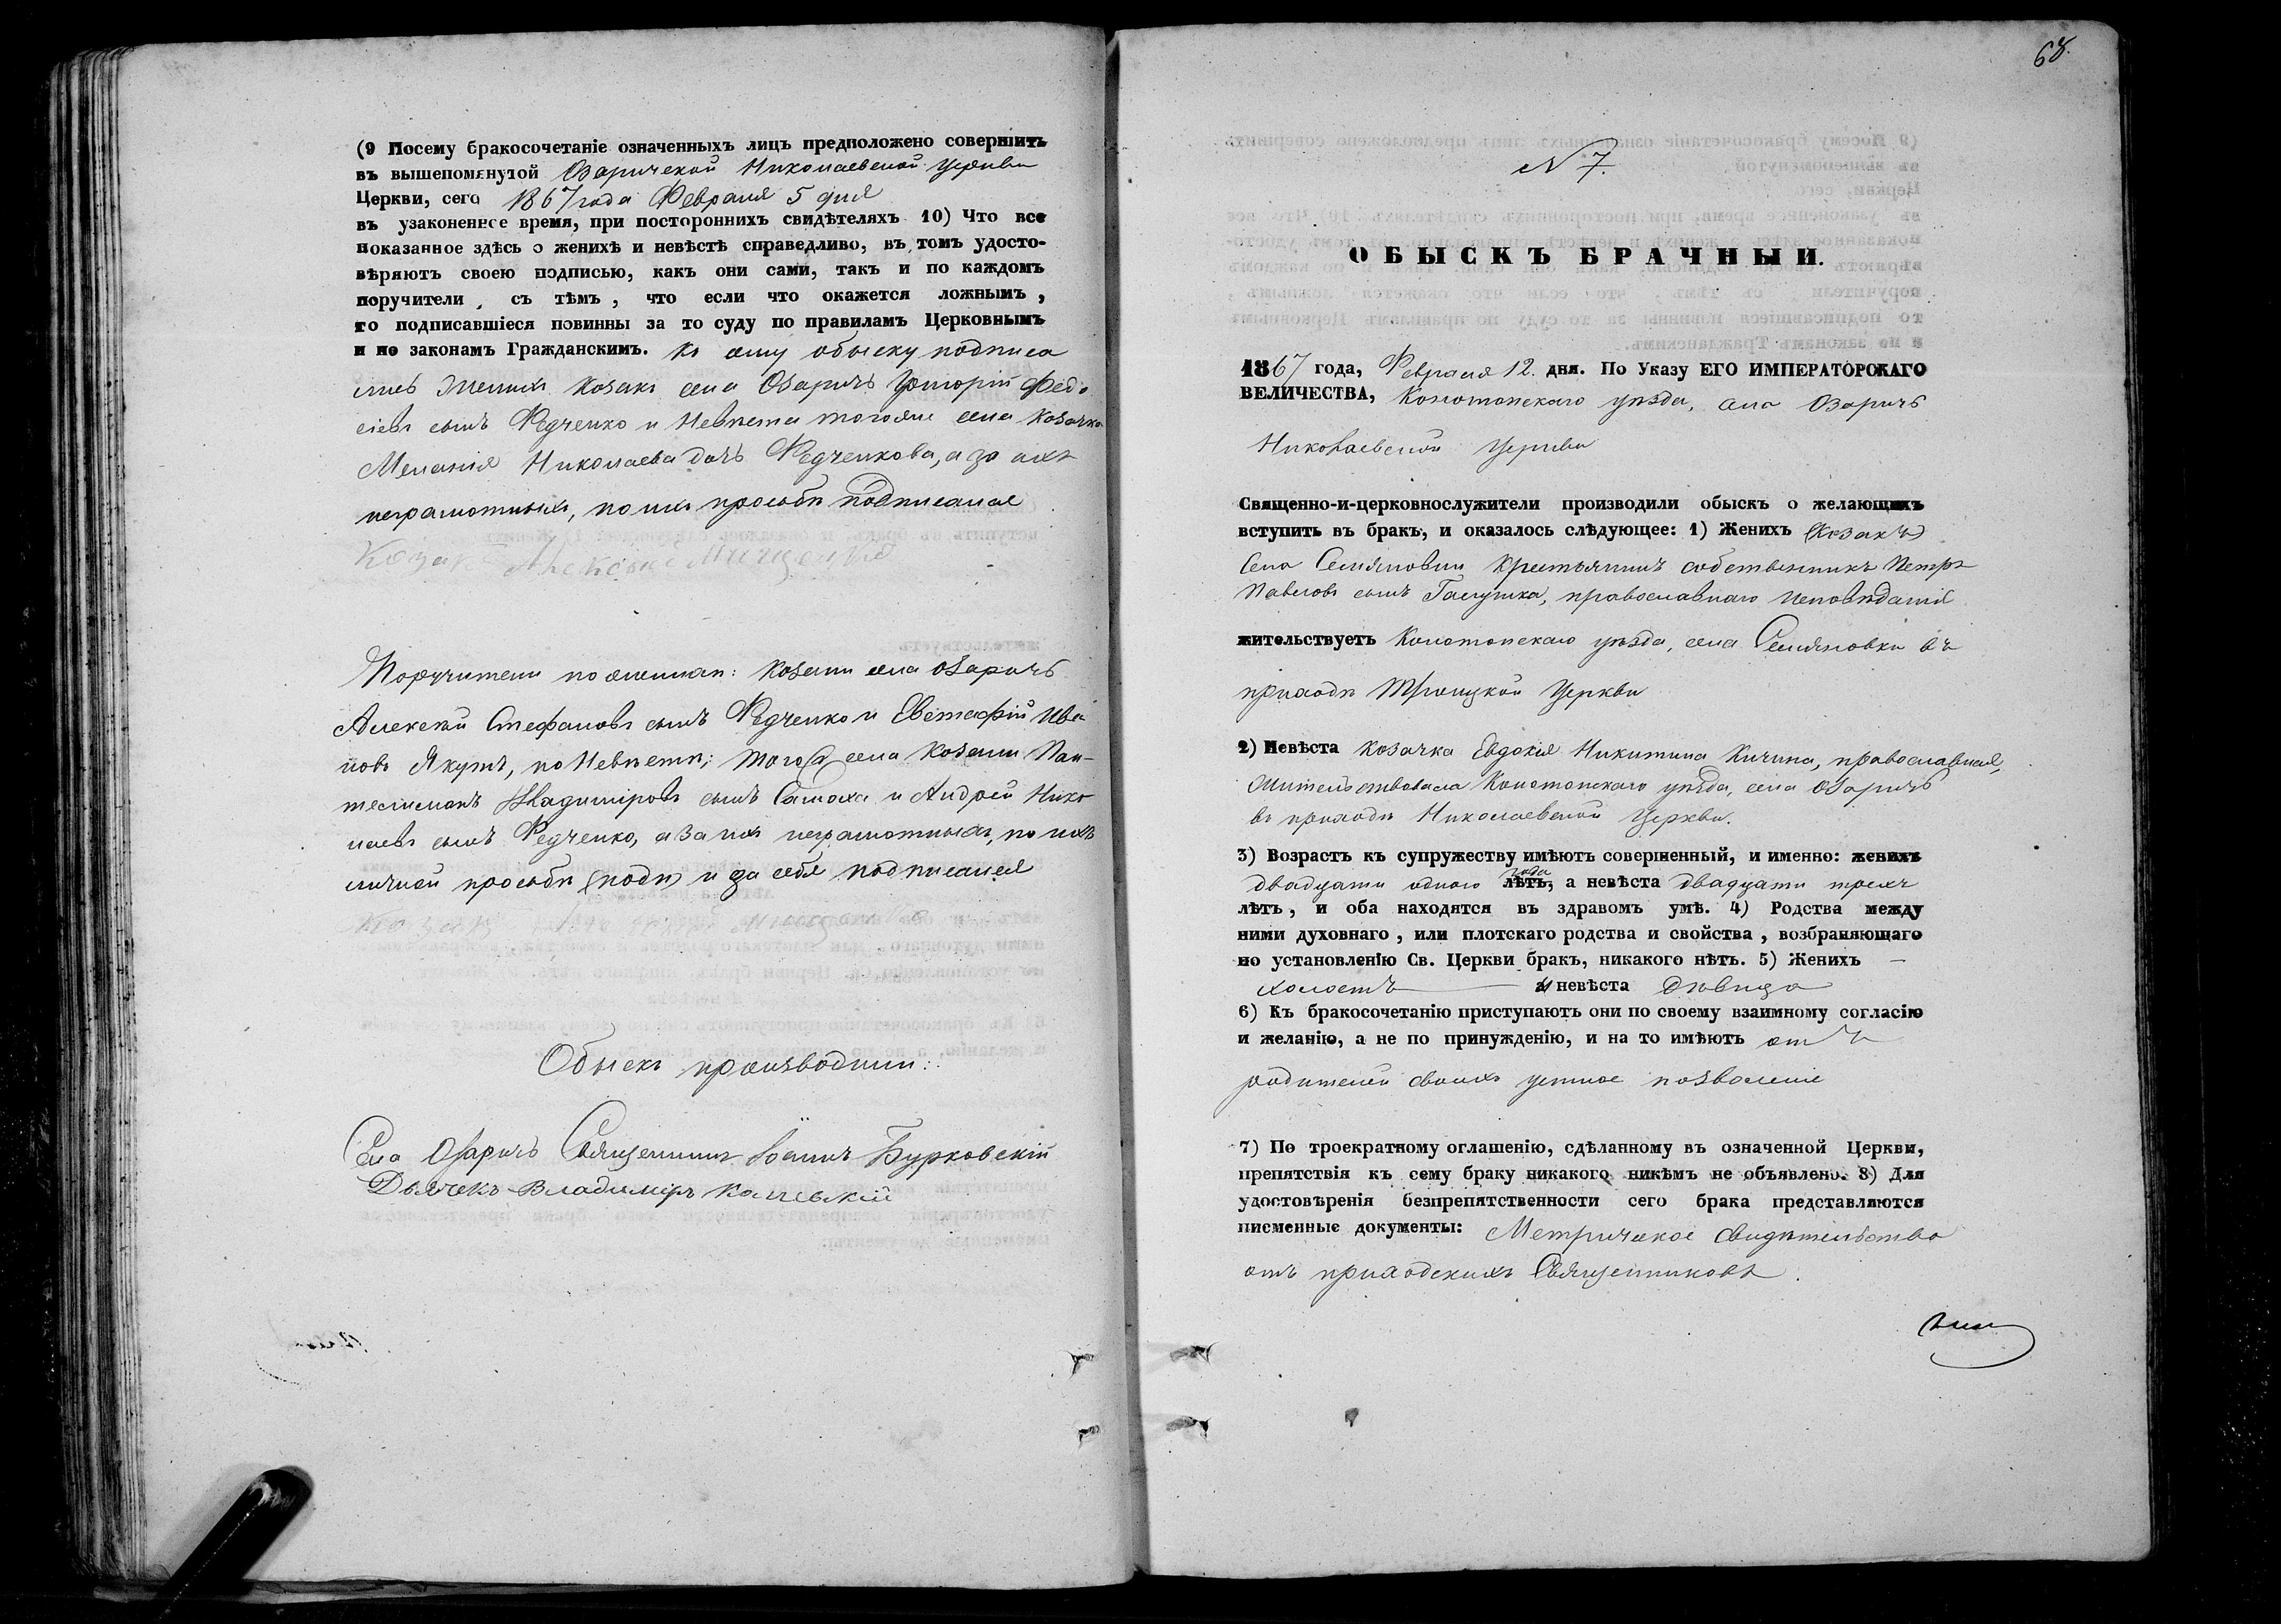 (9 Посему бракосочетаніе означенныхъ лицъ предположено совершить
въ вышепомянутой Озаричской Николаевской Церкви
Церкви, сего 1867 года Февраля 5 дня
въ узаконенное время, при постороннихъ свидѣтеляхъ 10) Что все
показанное здѣсь о женихѣ и невѣстѣ справедливо, въ томъ удосто-
вѣряютъ своею подписью, какъ они сами, такъ и по каждомъ
поручители, съ тѣмъ, что если что окажется ложнымъ,
то подписавшіеся повинны за то суду по правиламъ Церковнымъ
и по законамъ Гражданскимъ. Къ сему обыску подписа
лись Женихъ Козакъ села Озаричъ Федо
сіевъ сынъ Федченко и Невѣста тогоже села Козачка
Меланія Николаева дочь Федченкова, а за ихъ
неграмотныхъ, по ихъ просьбѣ подписался
Козакъ Алексѣй Мищенко
Поручители по женихѣ: Козаки села Озаричъ
Алексѣй Стефановъ сынъ Федченко и Евстафій Ива
новъ Якутъ, по Невѣстѣ; того села Козаки Пан-
телимонъ Владиміровъ сынъ Самоха и Андрей Нико
лаевъ сынъ Федченко, а за ихъ неграмотныхъ, по ихъ
личной просьбѣ (подп) и за себя подписался
Козакъ
Обыскъ производили:
Села Озаричъ Священникъ Іоаннъ Бурковскій
Дьячекъ Владиміръ
68.
N 7.
ОБЫСКЪ БРАЧНЫЙ.
1867 года, Февраля 12. дня. По Указу ЕГО ИМПЕРАТОРСКАГО
ВЕЛИЧЕСТВА, Конотопскаго уѣзда, села Озаричъ
Николаевской Церкви
Священно-и-церковнослужители производили обыскъ о желающихъ
вступить въ бракъ, и оказалось слѣдующее: 1) Женихъ (Козакъ)
Села Семяновки Крестьянинъ собственникъ Петръ
Павловъ сынъ Галушка, православнаго исповѣданія
жительствуетъ Конотопскаго уѣзда, села Семяновки въ
приходѣ Троицкой Церкви
2) Невѣста Козачка Евдокія Никитина Кичина, православная,
жительствовала Конотопскаго уѣзда, села Озаричъ
въ приходѣ Николаевской Церкви.
3) Возрастъ къ супружеству имѣютъ совершенный, и именно: женихъ
двадцати одного лѣтъ, года а невѣста двадцати трехъ
лѣтъ, и оба находятся въ здравомъ умѣ. 4) Родства между
ними духовнаго, или плотскаго родства и свойства, возбраняющаго
по установленію Св. Церкви бракъ, никакого нѣтъ. 5) Женихъ —
холостъ и невѣста дѣвица
6) Къ бракосочетанію приступаютъ они по своему взаимному согласію
и желанію, а не по принужденію, и на то имѣютъ отъ
родителей своихъ устное позволеніе
7) По троекратному оглашенію, сдѣланному въ означенной Церкви,
препятствія къ сему браку никакого никѣмъ не объявлено. 8) Для
удостовѣренія безпрепятственности сего брака представляются
писменные документы: Метрическое свидѣтельство
отъ приходскихъ Священниковъ.